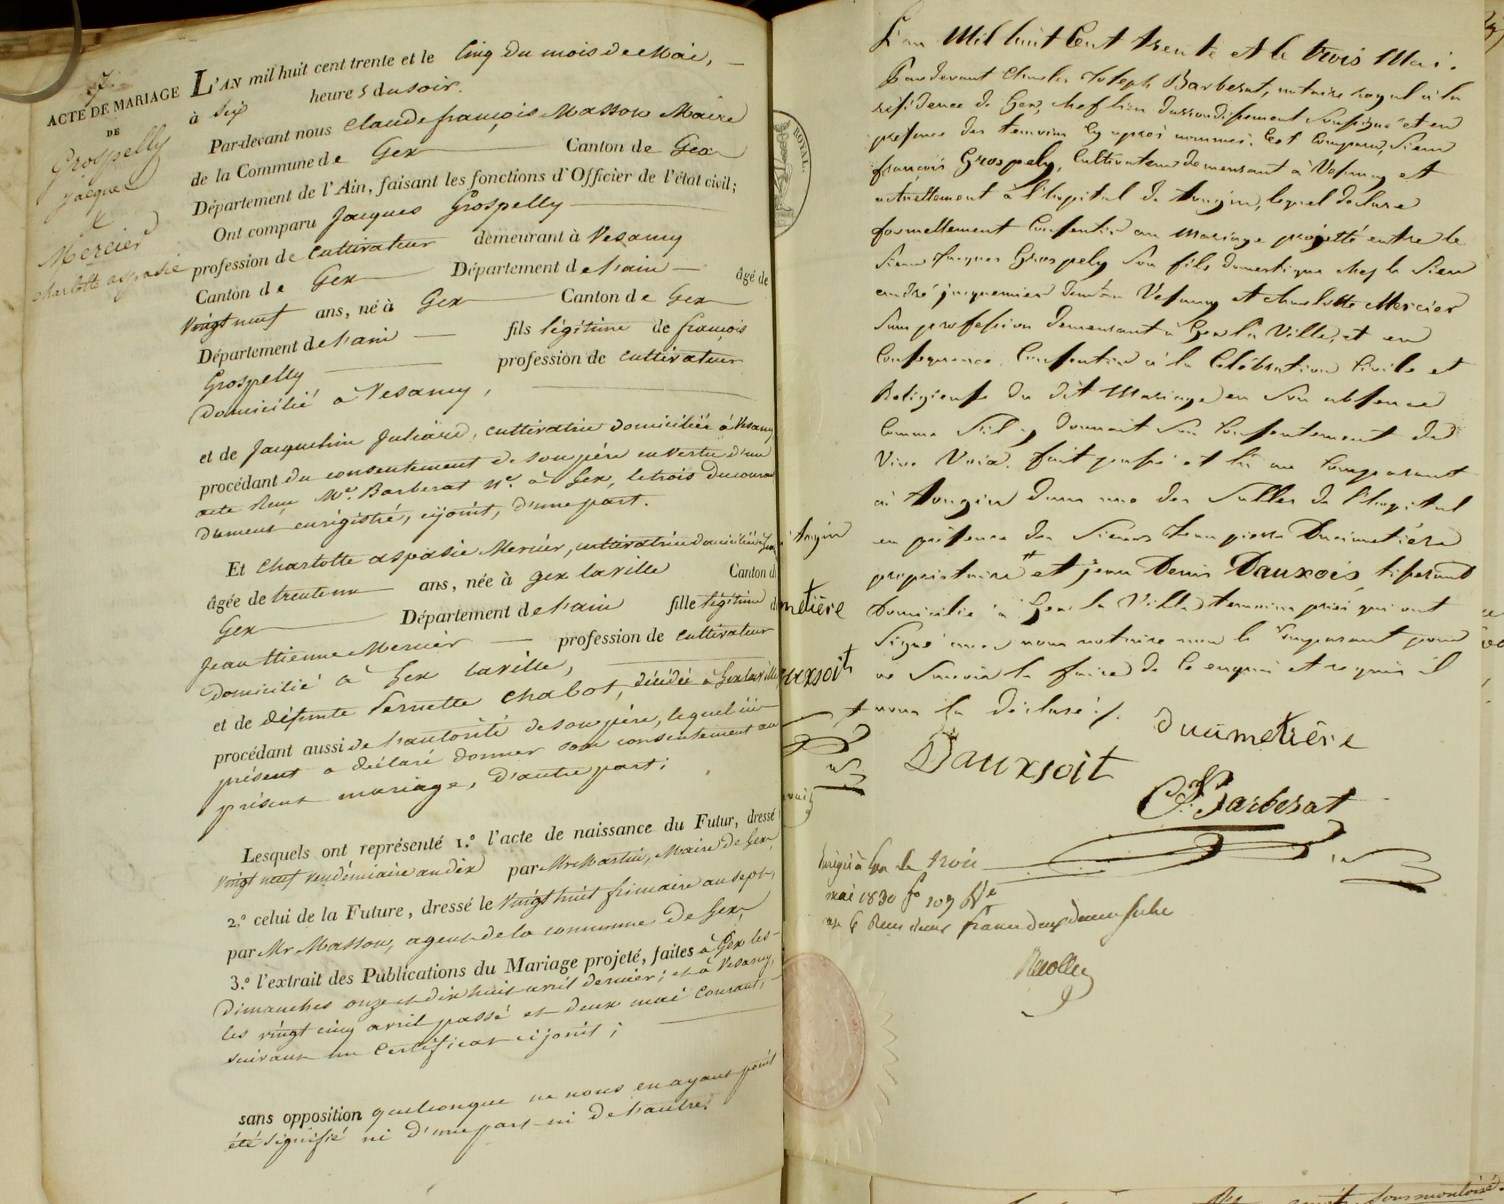 7.
ACTE DE MARIAGE
DE
Grospelly
Jacques
&
Mercier
charlotte aspasie
L'AN mil huit cent trente et le Cinq du mois de Mai,
à Six heures du soir.
Par-devant nous Claude françois Masson Maire
de la Commune de Gex Canton de Gex
Département de l'Ain, faisant les fonctions d'Officier de l'état civil;
Ont comparu Jacques Grospelly
profession de Cultivateur demeurant à Vesancy
Canton de Gex Département de l'ain âgé de
Vingt neuf ans, né à Gex Canton de Gex
Département de l'ain fils légitime de françois
Grospelly profession de cultivateur
domicilié à Vesancy,
et de Jacqueline Juliard, cultivatrice domiciliée à Vesancy
procédant du consentement de son père en vertu d'un
acte Reçu Me. Barberat Nre. à Gex, le trois du courant
dument enrégistré, cijoint, d'une part.
Et Charlotte aspasie Mercier, cultivatrice domiciliée à Gex
âgée de trente un ans, née à gex la ville Canton d
Gex Département de l'ain fille légitime d
Jean Etienne Mercier profession de cultivateur
domicilié à Gex la ville,
et de défunte Pernette Chabot, décédée à Gex la ville
procédant aussi de l'autorité de son père, lequel ici
présent a déclaré donner son consentement au
présent mariage, d'autre part;
Lesquels ont représenté 1.º l'acte de naissance du Futur, dressé
Vingt neuf vendémiaire an dix par Mr Martin, Maire de Gex,
2.º celui de la Future, dressé le Vingt huit frimaire an sept,
par Mr Masson, agent de la commune de Gex,
3.º l'extrait des Publications du Mariage projeté, faites à Gex les
dimanches onze et dix huit avril dernier; et à Vesancy,
les vingt cinq avril passé et deux mai courant,
suivant un certificat cijoint;
sans opposition quelconque ne nous en ayant point
été signifié ni d'une part ni de l'autre.
ROYAL
metière
auxsoit
L'an Mil huit Cent trente et le trois Mai.
Pardevant Charles Joseph Barberat, notaire royal à la
résidence de Gex, chef lieu d'arrondissement soussigné et en
présence des temoins cy après nommés. Est Comparu, Sieur
françois Grospely, Cultivateur demeurant à Vesancy et
actuellement à l'hopital de Tougin, lequel declare
formellement Consentir au mariage projetté entre le
Sieur Jacques Grospely son fils domestique chez le Sieur
andré jacquemier dudit Vesancy et charlotte Mercier
Sans profession demeurant à Gex la Ville, et en
Consequence Consentir à la Célébration Civile et
Religieuse du dit Mariage en Son absence
Comme S'il y donnait Son Consentement de
Vive Voix. fait passé et lu au Comparant
à Tougin dans une des Salles de l'hopital
en présence des Sieurs Jean pierre Ducimetière
propriétaire et jean Denis Dauxois, tisserand
Domicilié à Gex la Ville temoins priés qui ont
Signé avec nous notaire non le Comparant pour
ne Savoir le faire de ce enquis et requis il
nous l'a déclaré.
ducimetière
Dauxsoit
C. J. Barberat
Enrigé à Gex le trois
mai 1830 fo 109